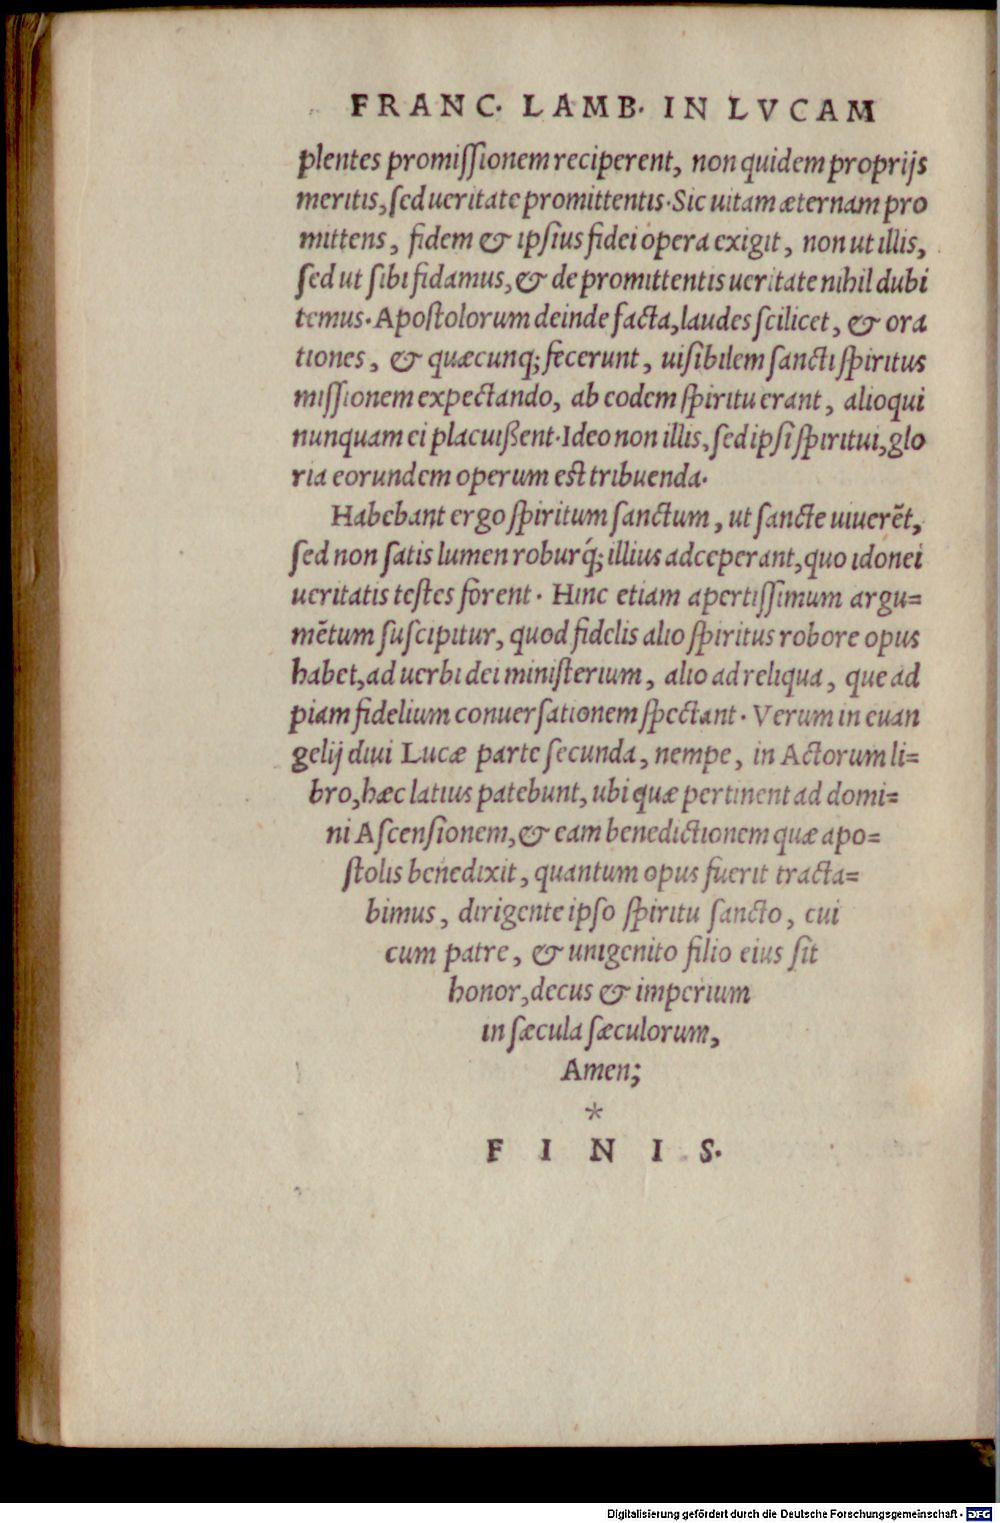 FRANC. LAMB. IN LVCAM
plentes promiſſionem reciperent, non quidem proprijs
meritis, ſed ueritate promittentis. Sic uitam æternam pro
mittens, fidem & ipſius fidei opera exigit, non ut illis,
ſed ut ſibi fidamus, & de promittentis ueritate nihil dubi
temus. Apoſtolorum deinde facta, laudes ſcilicet, & ora
tiones, & quæcunq; fecerunt, uiſibilem ſancti ſpiritus
miſſionem expectando, ab eodem ſpiritu erant, alioqui
nunquam ei placuißent. Ideo non illis, ſed ipſi ſpiritui, glo
ria eorundem operum eſt tribuenda.
Habebant ergo ſpiritum ſanctum, ut ſancte uiuerẽt,
ſed non ſatis lumen roburq́; illius adceperant, quo idonei
ueritatis teſtes forent. Hinc etiam apertiſſimum argu=
mẽtum ſuſcipitur, quod fidelis alio ſpiritus robore opus
habet, ad uerbi dei miniſterium, alio ad reliqua, que ad
piam fidelium conuerſationem ſpectant. Verum in euan
gelij diui Lucæ parte ſecunda, nempe, in Actorum li=
bro, hæc latius patebunt, ubi quæ pertinent ad domi=
ni Aſcenſionem, & eam benedictionem quæ apo=
ſtolis benedixit, quantum opus fuerit tracta=
bimus, dirigente ipſo ſpiritu ſancto, cui
cum patre, & unigenito filio eius ſit
honor, decus & imperium
in ſæcula ſæculorum,
Amen;
*
FINIS.
Digitalisierung gefördert durch die Deutsche Forschungsgemeinschaft - DFG